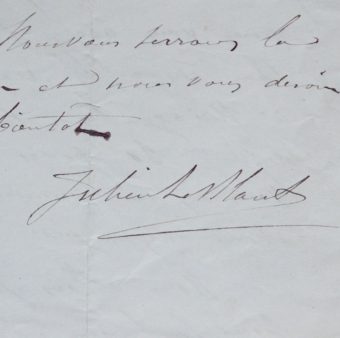 Nous vous serrons la
- et nous vous disons
bientot
Julien Le Blant